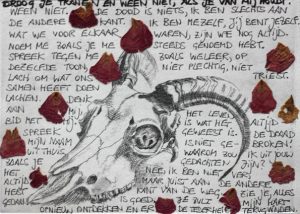 DROOG JE TRANEN EN WEEN NIET, ALS JE VAN MIJ HOUDT.
DE DOOD IS NIETS, IK BEN SLECHTS AAN
DE ANDERE KANT. IK BEN MEZELF, JIJ BENT JEZELF.
WAT WE VOOR ELKAAR WAREN, ZIJN WE NOG ALTIJD.
NOEM ME ZOALS JE ME STEEDS GENOEMD HEBT.
SPREEK TEGEN ME ZOALS WELEER, OP
DEZELFDE TOON, NIET PLECHTIG, NIET
TRIEST.
LACH OM WAT ONS
SAMEN HEEFT DOEN
LACHEN. DENK
AAN MIJ
BID MET MIJ. HET LEVEN
SPREEK IS WAT HET ALTIJD
MIJN NAAM GEWEEST IS. DE DRAAD
UIT THUIS IS NIET GEBROKEN.
ZOALS JE WAAROM ZOU IK UIT JOUW
HET GEDACHTEN ZIJN?
ALTIJD NEE, IK BEN NIET VER
HEBT MAAR JUIST AAN DE ANDERE
GEDAAN. KANT VAN JE, ALLES
IS GOED, JE ZULT MIJN HART
OPNIEUW ONTDEKKEN EN ER DE TEDERHEID TERUGVINDEN